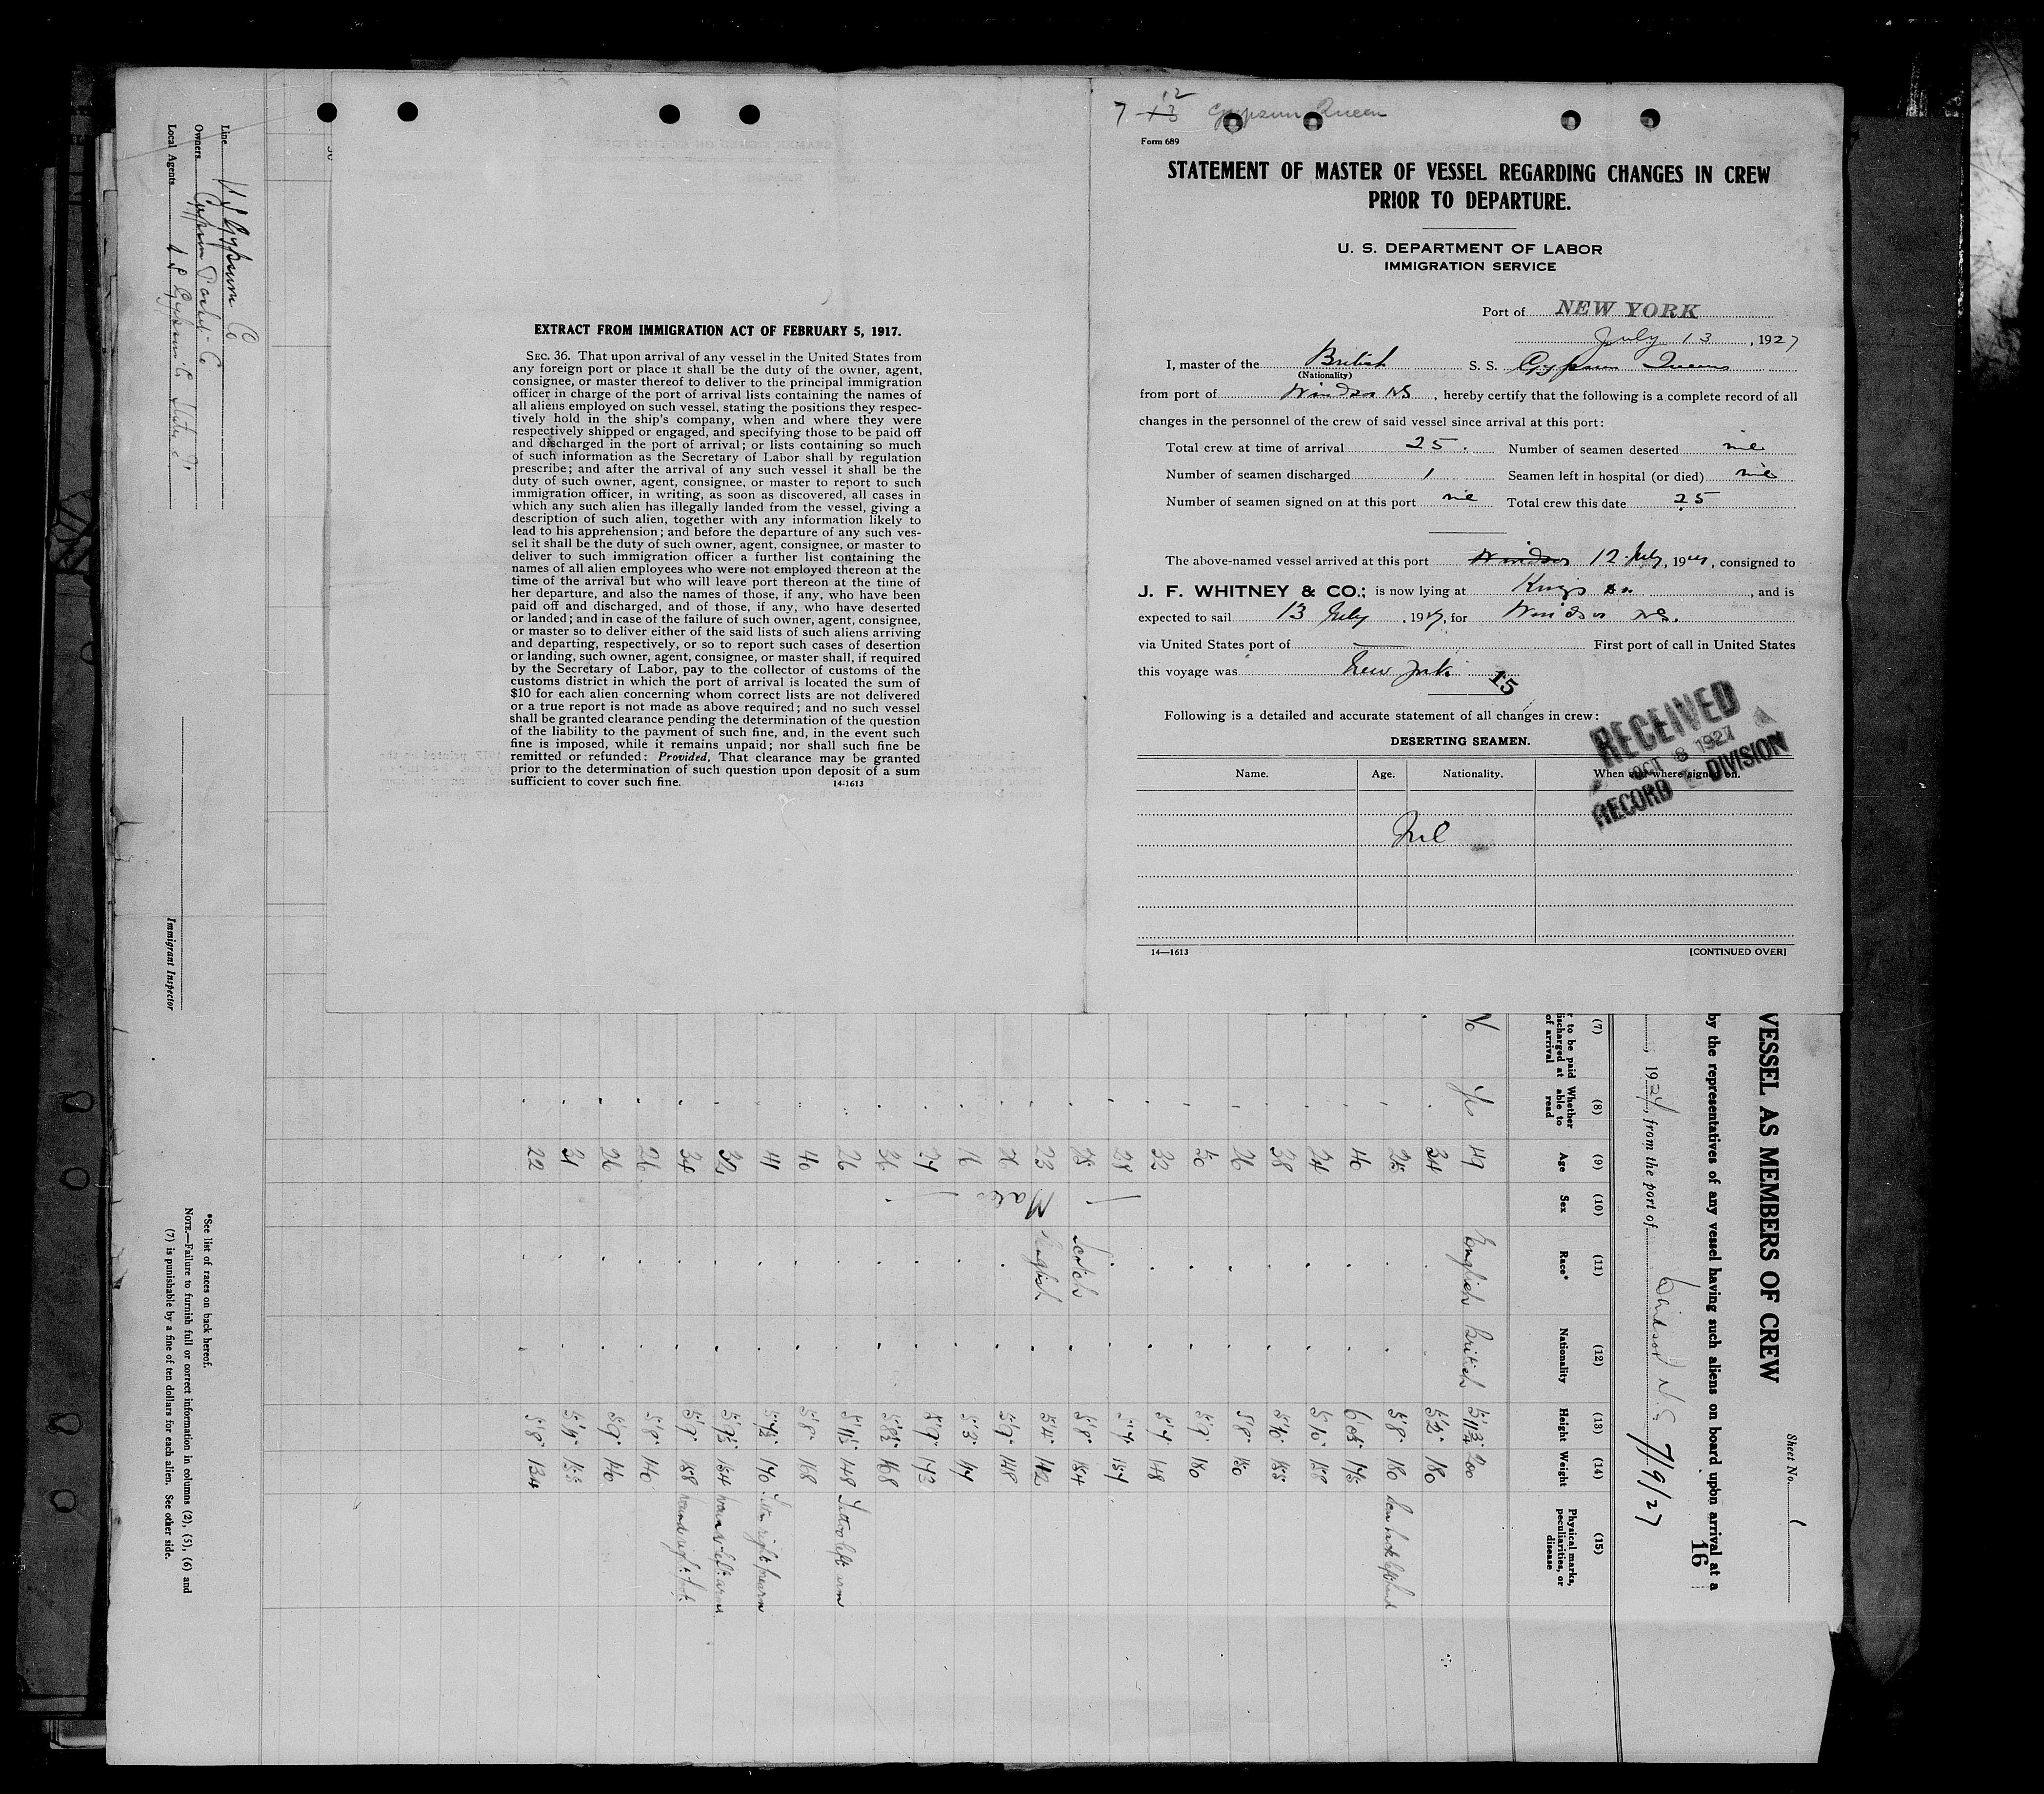 7 12 Gypsum Queen
Form 689
STATEMENT OF MASTER OF VESSEL REGARDING CHANGES IN CREW
PRIOR TO DEPARTURE.
U. S. DEPARTMENT OF LABOR
IMMIGRATION SERVICE
Port of NEW YORK
July 13, 1927
I, master of the British S. S. Gypsum Queen
(Nationality)
from port of Windsor NS, hereby certify that the following is a complete record of all
changes in the personnel of the crew of said vessel since arrival at this port:
Total crew at time of arrival 25. Number of seamen deserted nil
Number of seamen discharged 1 Seamen left in hospital (or died) nil
Number of seamen signed on at this port nil Total crew this date 25
The above-named vessel arrived at this port Windsor 12 July, 1927, consigned to
J. F. WHITNEY & CO.; is now lying at Kings, and is
expected to sail 13 July, 1927, for Windsor NS.
via United States port of First port of call in United States
this voyage was New York.
15
Following is a detailed and accurate statement of all changes in crew:
DESERTING SEAMEN.
Name. Age. Nationality. When and where signed on.
Nil
RECEIVED
OCT 8 1927
RECORD DIVISION
14—1613 [CONTINUED OVER]
EXTRACT FROM IMMIGRATION ACT OF FEBRUARY 5, 1917.
SEC. 36. That upon arrival of any vessel in the United States from
any foreign port or place it shall be the duty of the owner, agent,
consignee, or master thereof to deliver to the principal immigration
officer in charge of the port of arrival lists containing the names of
all aliens employed on such vessel, stating the positions they respec-
tively hold in the ship's company, when and where they were
respectively shipped or engaged, and specifying those to be paid off
and discharged in the port of arrival; or lists containing so much
of such information as the Secretary of Labor shall by regulation
prescribe; and after the arrival of any such vessel it shall be the
duty of such owner, agent, consignee, or master to report to such
immigration officer, in writing, as soon as discovered, all cases in
which any such alien has illegally landed from the vessel, giving a
description of such alien, together with any information likely to
lead to his apprehension; and before the departure of any such ves-
sel it shall be the duty of such owner, agent, consignee, or master to
deliver to such immigration officer a further list containing the
names of all alien employees who were not employed thereon at the
time of the arrival but who will leave port thereon at the time of
her departure, and also the names of those, if any, who have been
paid off and discharged, and of those, if any, who have deserted
or landed; and in case of the failure of such owner, agent, consignee,
or master so to deliver either of the said lists of such aliens arriving
and departing, respectively, or so to report such cases of desertion
or landing, such owner, agent, consignee, or master shall, if required
by the Secretary of Labor, pay to the collector of customs of the
customs district in which the port of arrival is located the sum of
$10 for each alien concerning whom correct lists are not delivered
or a true report is not made as above required; and no such vessel
shall be granted clearance pending the determination of the question
of the liability to the payment of such fine, and, in the event such
fine is imposed, while it remains unpaid; nor shall such fine be
remitted or refunded: Provided, That clearance may be granted
prior to the determination of such question upon deposit of a sum
sufficient to cover such fine. 14-1613
Sheet No. 1
VESSEL AS MEMBERS OF CREW
by the representatives of any vessel having such aliens on board upon arrival at a
16
, 1927, from the port of Windsor N.S. 7/9/27
(7) (8) (9) (10) (11) (12) (13) (14) (15)
r to be paid
ischarged at
of arrival
Whether
able to
read
Age
Sex
Race*
Nationality
Height
Weight
Physical marks,
peculiarities, or
disease
No Yes 49 English British 5'11¾" 200
34 5'2" 180
25 5'8" 180
40 6'0½" 175
24 5'10" 158
38 5'10" 155
26 5'8" 150
50 5'9" 180
32 5'7" 148
28 5'7" 157
25 Scotch 5'8" 154
23 Male English 5'4" 112
26 5'9" 148
16 5'3" 117
27 5'9" 143
36 5'8½" 168
26 5'11½" 148 Tattoo left arm
40 5'8" 168
41 5'7½" 170 right forearm
32 5'9½" 154 left arm
34 5'9" 158 right foot
26 5'8" 140
26 5'9" 140
21 5'9" 155
22 5'8" 134
Line U S Gypsum Co
Owners Gypsum Packet Co
Local Agents U S Gypsum Co
Immigrant Inspector
*See list of races on back hereof.
NOTE.—Failure to furnish full or correct information in columns (2), (5), (6) and
(7) is punishable by a fine of ten dollars for each alien. See other side.